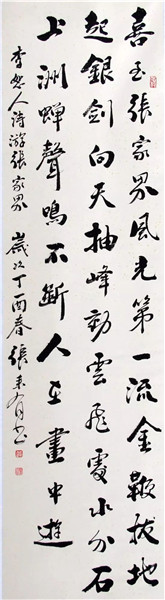 喜至張家界風光第一流金鞭拔地
起銀劍向天抽峰動雲飛處水分石
上洲蟬聲鳴不斷人在畫中遊
李人詩游張家界 歲次丁酉春張書